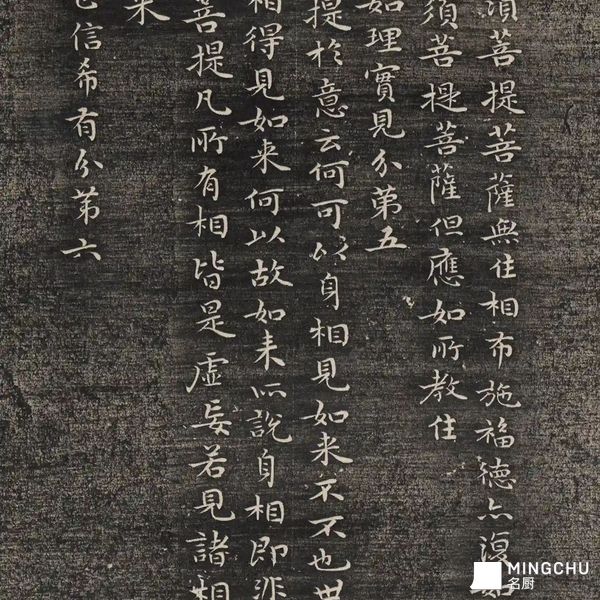 須菩提菩薩無住相布施福德亦復
須菩提菩薩但應如所教住
如理實見分第五
提於意云何可以身相見如来不不也世
相得見如来何以故如来所說身相即非
菩提凡所有相皆是虛妄若見諸相
来
信希有分第六
MINGCHU
名厨